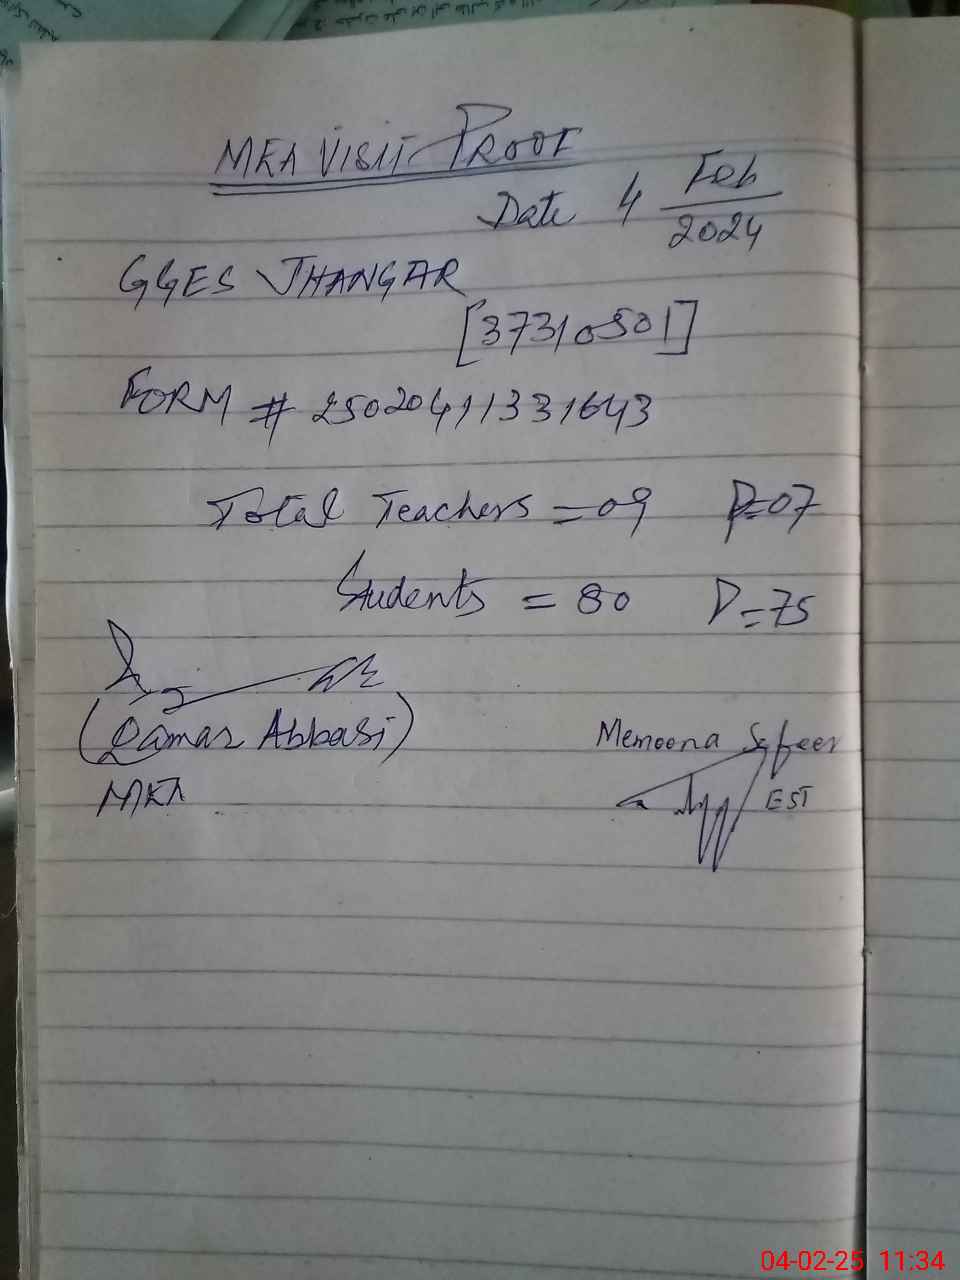 MEA VISIT PROOF
Date 4 Feb
2024
GGES JHANGAR
[37310501]
FORM # 25020411331643
Total Teachers = 09 P=07
Students = 80 P=75
(Qamar Abbasi)
MEA
Memoona Safeer
EST
04-02-25 11:34